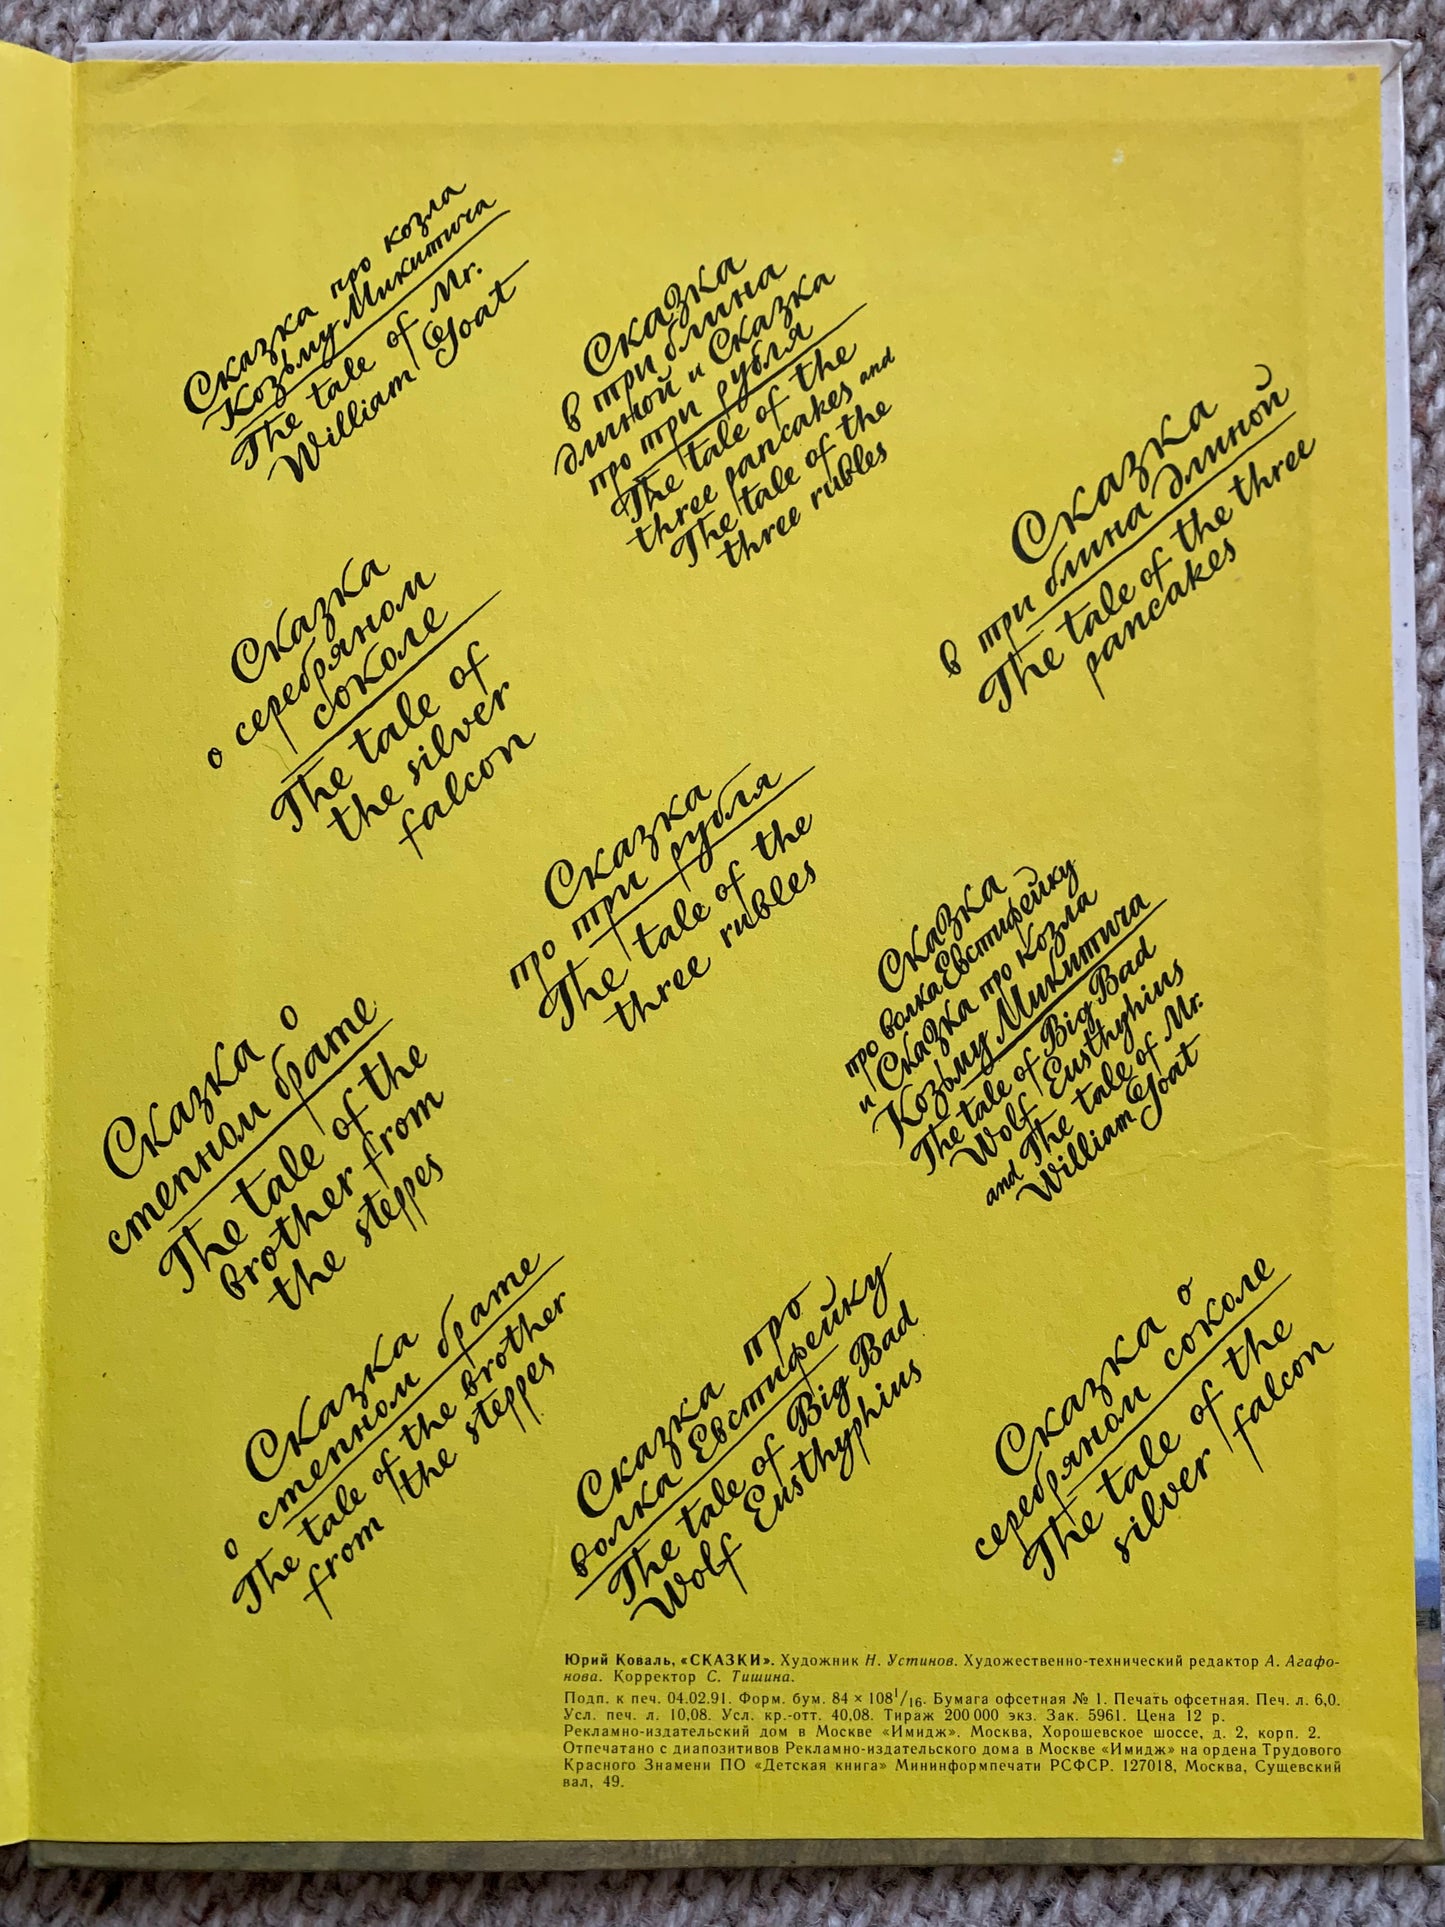 Сказка про козла
Козьму Микитича
The tale of Mr.
William Goat
Сказка
в три блина
длиной и Сказка
про три рубля
The tale of the
three pancakes and
The tale of the
three rubles
Сказка
в три блина длиной
The tale of the three
pancakes
Сказка
о серебряном
соколе
The tale of
the silver
falcon
Сказка
про три рубля
The tale of the
three rubles
Сказка
про волка Евстифейку
и Сказка про козла
Козьму Микитича
The tale of Big Bad
Wolf Eusthyphius
and The tale of Mr.
William Goat
Сказка о
степном брате
The tale of the
brother from
the steppes
Сказка
о степном брате
The tale of the brother
from the steppes
Сказка про
волка Евстифейку
The tale of Big Bad
Wolf Eusthyphius
Сказка о
серебряном соколе
The tale of the
silver falcon
Юрий Коваль, «СКАЗКИ». Художник Н. Устинов. Художественно-технический редактор А. Агафо-
нова. Корректор С. Тишина.
Подп. к печ. 04.02.91. Форм. бум. 84 × 108¹/₁₆. Бумага офсетная № 1. Печать офсетная. Печ. л. 6,0.
Усл. печ. л. 10,08. Усл. кр.-отт. 40,08. Тираж 200 000 экз. Зак. 5961. Цена 12 р.
Рекламно-издательский дом в Москве «Имидж». Москва, Хорошевское шоссе, д. 2, корп. 2.
Отпечатано с диапозитивов Рекламно-издательского дома в Москве «Имидж» на ордена Трудового
Красного Знамени ПО «Детская книга» Мининформпечати РСФСР. 127018, Москва, Сущевский
вал, 49.